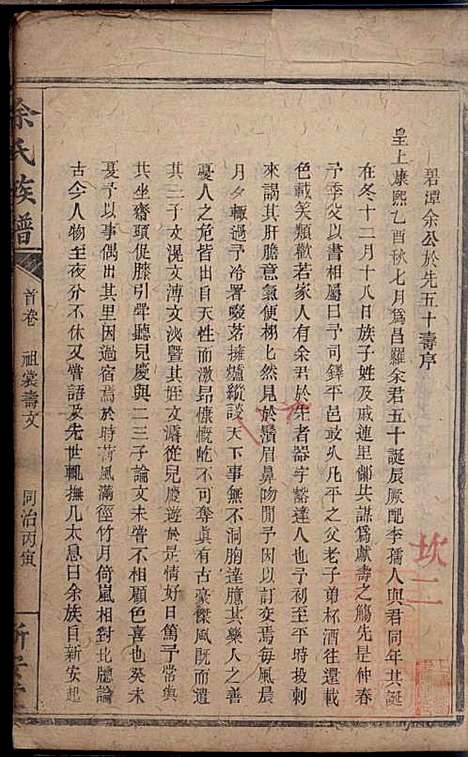 碧潭余公於先五十壽序
皇上康熙乙酉秋七月爲昌羅余君五十誕辰厥配李孺人與君同年其誕
在冬十二月十八日族子姓及戚連里鄰共謀爲獻壽之觴先是仲春
予季父以書相屬曰予司鐸平邑敢久凡平之父老子弟杯酒往還載
色載笑類歡若家人有余君於先者器宇豁達人也予初至平時投刺
來謁其肝膽意氣便栩七然見於鬚眉鼻吻間予因以訂交焉每風晨
月夕輙過予冷署啜茗擁爐縱談天下事無不洞胸達臆其樂人之善
憂人之危皆出天性而激昂慷慨屹不可奪真有古豪傑風旣而遣
其二子文滉文溥文淺曁其姪文灊從兒慶遊於是情好日篤予常與
共坐齋頭促膝引聲聽兒慶與二三子論文未嘗不相顧色喜也癸未
夏予以事偶出其里因過宿焉於時荷風滿徑竹月倚嵐相對北牕論
古今人物至夜分不休又嘗語及先世輒撫几太息曰余族自新安起
余氏族譜
首卷
祖裳壽文
同治丙寅
新安堂
坎二